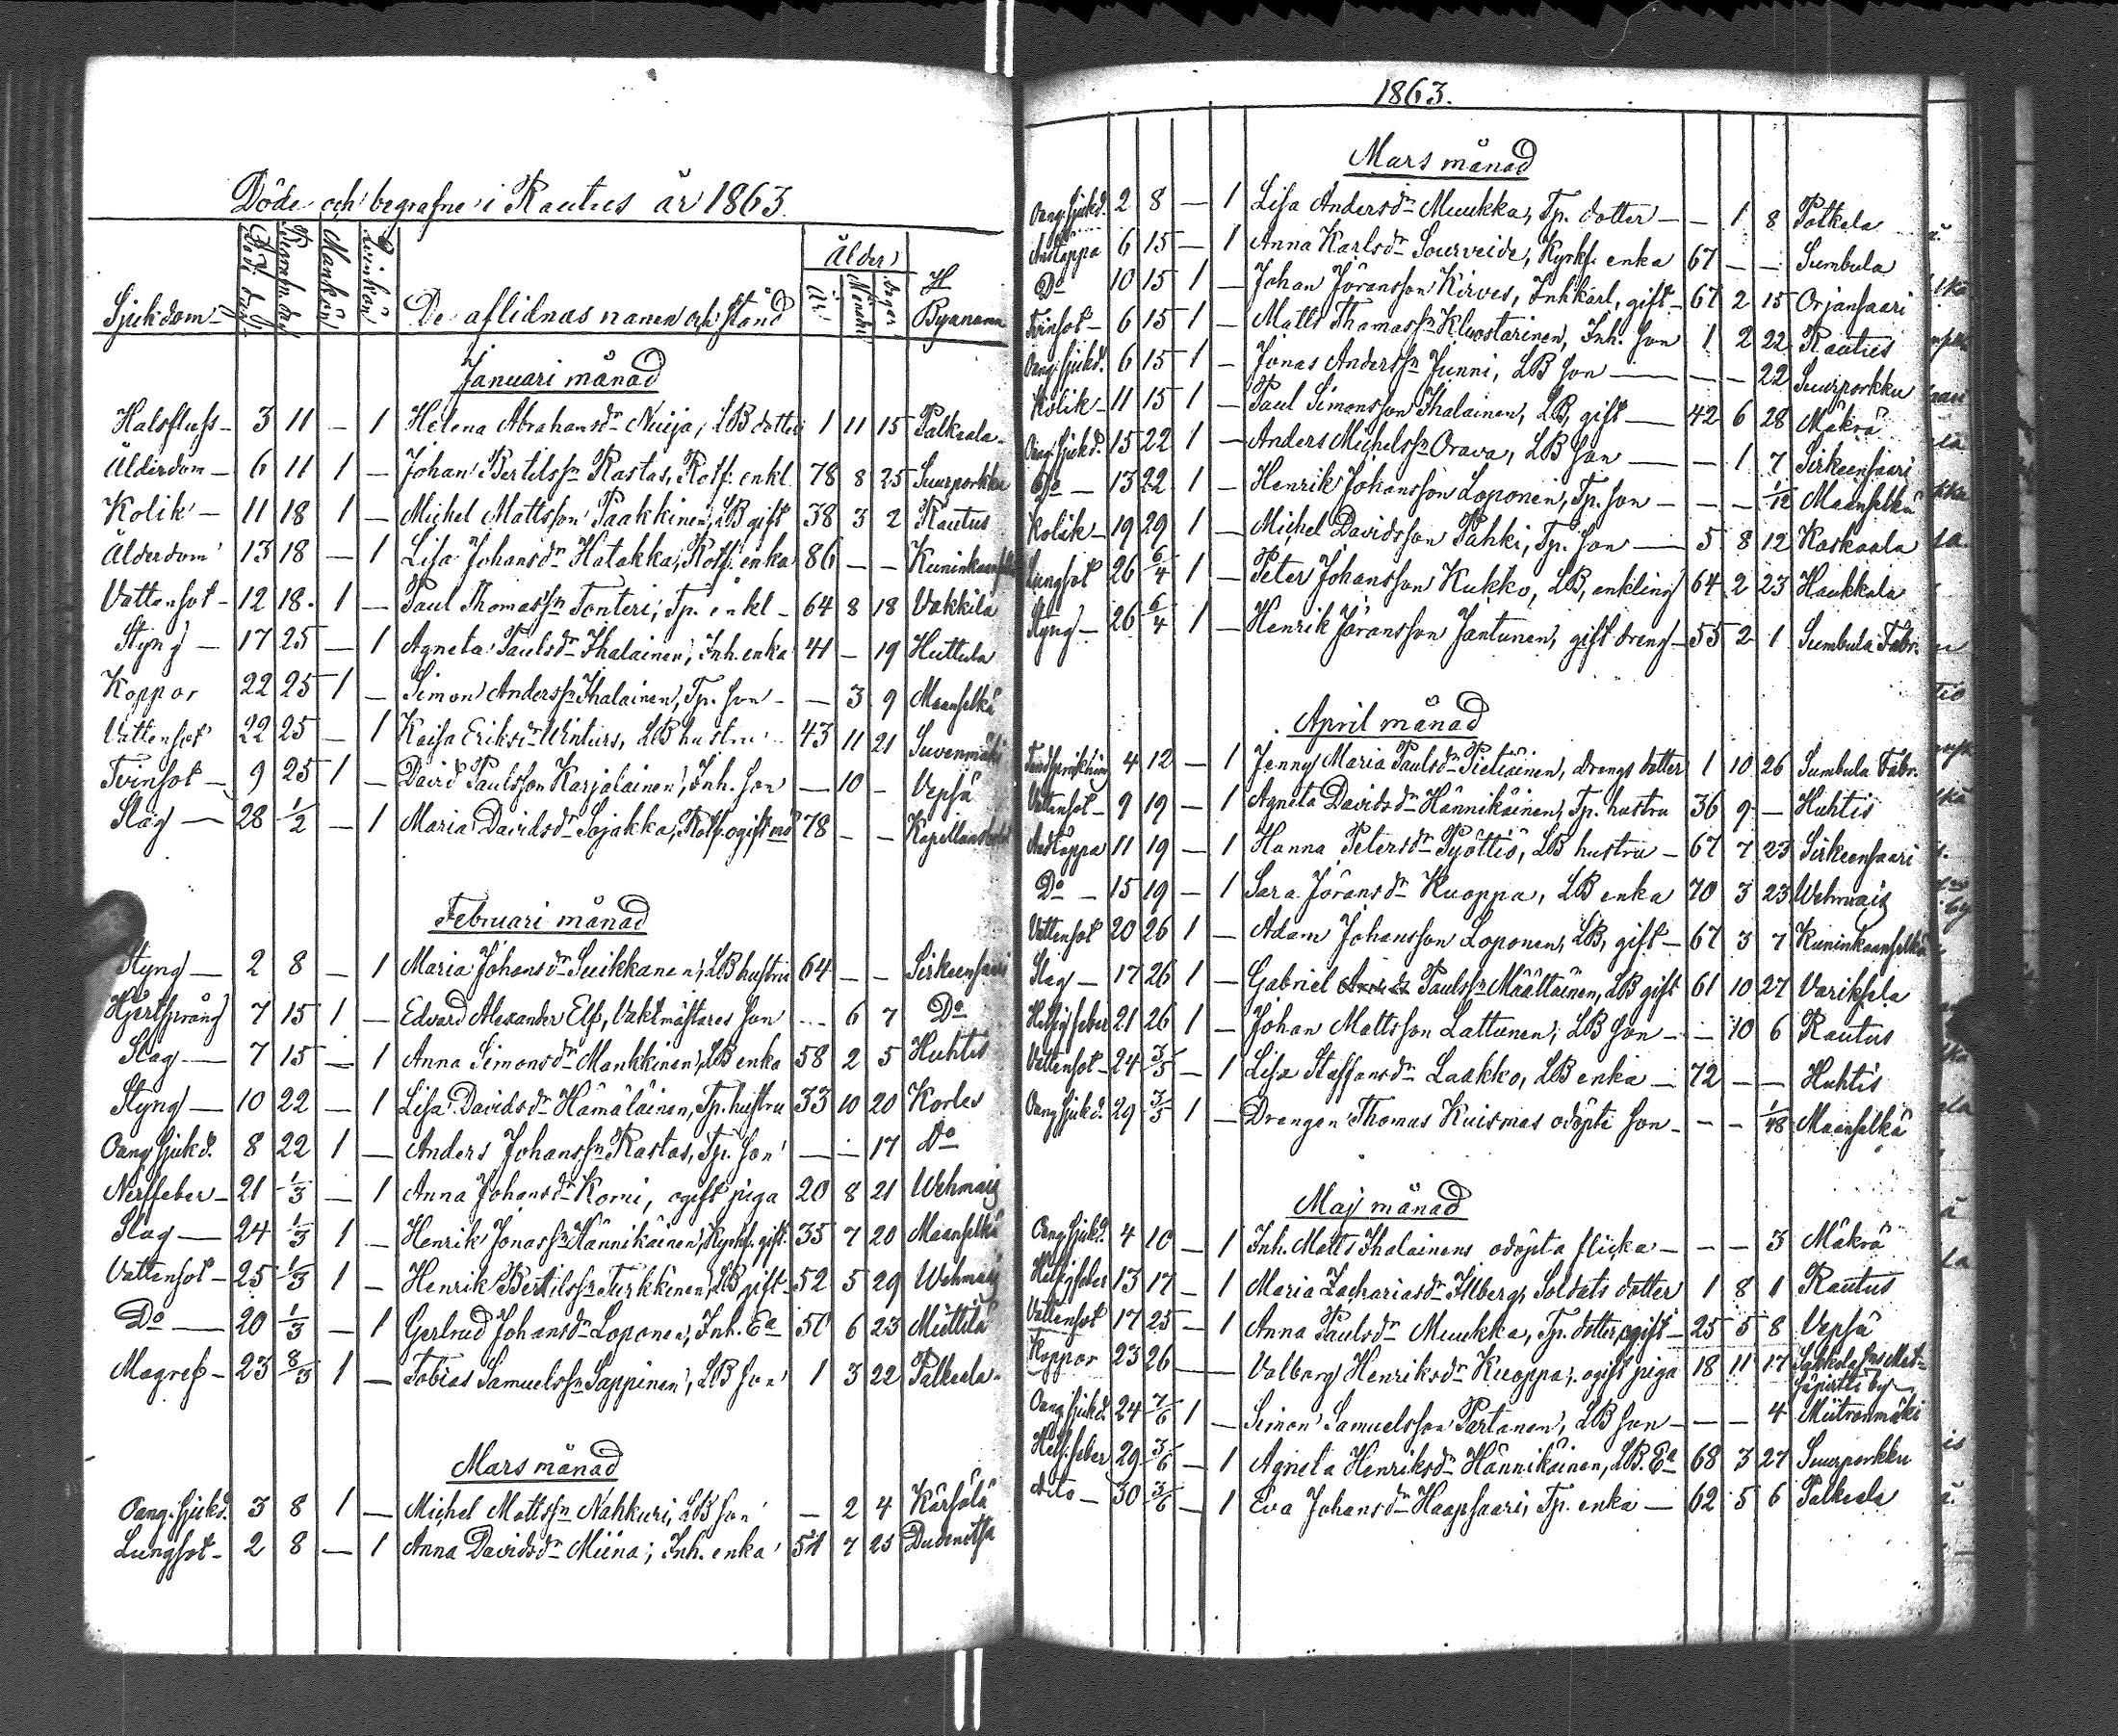 Döde och begrafne i Rautus år 1863.
Sjukdom Död. dag Begrafn. dag Mankön Qvinkön De aflidnas namn och stånd Ålder År Månader Dagar Byanamn
Januari månad
Halsfluss - 3 11 - 1 Helena Abrahamsdr Nuija, LB dotter 1 11 15 Palkeala
Ålderdom - 6 11 1 - Johan Bertilssn Rastas, Rotf. enkl. 78 8 25 Suurporkku
Kolik - 11 18 1 - Michel Mattsson Paakkinen, LB gift 38 3 2 Rautus
Ålderdom 13 18 - 1 Lisa Johansdr Hatakka, Rotf. enka 86 - - Kuninkaanselkä
Vattensot - 12 18. 1 - Paul Thomassn Tonteri, Tp. enkl - 64 8 18 Vakkila
Styng - 17 25 - 1 Agneta Paulsdr Ihalainen, Inh. enka 41 - 19 Huttula
Koppor 22 25 1 - Simon Anderssn Ihalainen, Tp. son - - 3 9 Maanselkä
Vattensot 22 25 - 1 Kaisa Eriksdr Winturs, LB hustru 43 11 21 Suvenmäki
Tvinsot - 9 25 1 - David Paulsson Karjalainen, Inh. son - 10 - Vepsä
Slag - 28 1/2 - 1 Maria Davidsdr Sojakka, Rotf. ogift 78 - -
Februari månad
Styng - 2 8 - 1 Maria Johansdr Suikkanen, LB hustru 64 - - Sirkeensaari
Hjertsprång 7 15 1 - Edvard Alexander Elf, Vaktmästares son - 6 7 Do
Slag - 7 15 - 1 Anna Simonsdr Mankkinen, LB enka 58 2 5 Huhtis
Styng - 10 22 - 1 Lisa Davidsdr Hämäläinen, Tp. hustru 33 10 20 Korles
Oang. sjukd. 8 22 1 - Anders Johanssn Rastas, Tp. son - - 17 Do
Nerffeber - 21 1/3 - 1 Anna Johansdr Korni, ogift piga 20 8 21 Wehmais
Slag - 24 1/3 1 - Henrik Jonassn Hännikäinen, Kyrkf. gift. 35 7 20 Maanselkä
Vattensot - 25 1/3 1 - Henrik Bertilssn Turkkinen, LB gift - 52 5 29 Wehmais
Do - 20 1/3 - 1 Gertrud Johansdr Loponen, Inh. Ea 50 6 23 Miettilä
Magref - 23 8/3 1 - Tobias Samuelssn Sappinen, LB son 1 3 22 Palkeala
Mars månad
Oang. sjukd. 3 8 1 - Michel Mattssn Nahkuri, LB son - 2 4 Kärsälä
Lungsot - 2 8 - 1 Anna Davidsdr Miina, Inh. enka 54 7 25
1863.
Mars månad
Oang. sjukd. 2 8 - 1 Lisa Andersdr Muukka, Tp. dotter - - 1 8 Palkela
Andtäppa 6 15 - 1 Anna Karlsdr Sourveide, Kyrkf. enka 67 - - Sumbula
Do 10 15 1 - Johan Jöransson Kirves, Inh karl, gift - 67 2 15 Orjansaari
Tvinsot - 6 15 1 - Matts Thomassn Kluostarinen, Inh. son 1 2 22 Rautus
Oang. sjukd. 6 15 1 - Jonas Anderssn Junni, LB son - - - 22 Suurporkku
Kolik - 11 15 1 - Paul Simonsson Ihalainen, LB, gift - 42 6 28 Mäkrä
Oang. sjukd. 15 22 1 - Anders Michelssn Orava, LB son - - 1 7 Sirkeensaari
Do - 13 22 1 - Henrik Johansson Loponen, Tp. son - - - 1/12 Maanselkä
Kolik - 19 29 1 - Michel Davidsson Pähki, Tp. son - 5 8 12 Kaskaala
Lungsot 26 6/4 1 - Peter Johansson Kukko, LB, enkling 64 2 23 Haukkala
Styng - 26 6/4 1 - Henrik Jöransson Jantunen, gift dreng - 55 2 1 Sumbula Fabr.
April månad
4 12 - 1 Jenny Maria Paulsdr Pietiäinen, drengs dotter 1 10 26 Sumbula Fabr.
Vattensot - 9 19 - 1 Agneta Davidsdr Hännikäinen, Tp. hustru 36 9 - Huhtis
Andtäppa 11 19 - 1 Hanna Petersdr Pyöttiö, LB hustru - 67 7 23 Sirkeensaari
Do - 15 19 - 1 Sara Jöransdr Kuoppa, LB enka 70 3 23 Wehmais
Vattensot 20 26 1 - Adam Johansson Loponen, LB, gift - 67 3 7 Kuninkaanselkä
Slag - 17 26 1 - Gabriel Paulssn Määttänen, LB gift 61 10 27 Variksela
Hetsig feber 21 26 1 - Johan Mattsson Lattunen, LB son - - 10 6 Rautus
Vattensot - 24 3/5 - 1 Lisa Staffansdr Laakko, LB enka - 72 - - Huhtis
Oang sjukd. 29 3/5 1 - Drengen Thomas Kuismas odöpte son - - - 1/48 Maanselkä
Maj månad
Oang sjukd. 4 10 - 1 Inh. Matts Ihalainens odöpta flicka - - - 3 Mäkrä
Hetsig feber 13 17 - 1 Maria Zachariasdr Illberg, Soldats dotter 1 8 1 Rautus
Vattensot 17 25 - 1 Anna Paulsdr Muukka, Tp. dotter, ogift - 25 5 8 Vepsä
Koppor 23 26 - - Valborg Henriksdr Kuoppa, ogift piga 18 11 17 Sakkola
Oang sjukd. 24 7/6 1 - Simon Samuelsson Partanen, LB son - - - 4 Miitronmäki
Hets. feber 29 3/6 - 1 Agneta Henriksdr Hännikäinen, LB. Ea 68 3 27 Suurporkku
dito - 30 3/6 - 1 Eva Johansdr Haapsaari, Tp. enka - 62 5 6 Palkeala